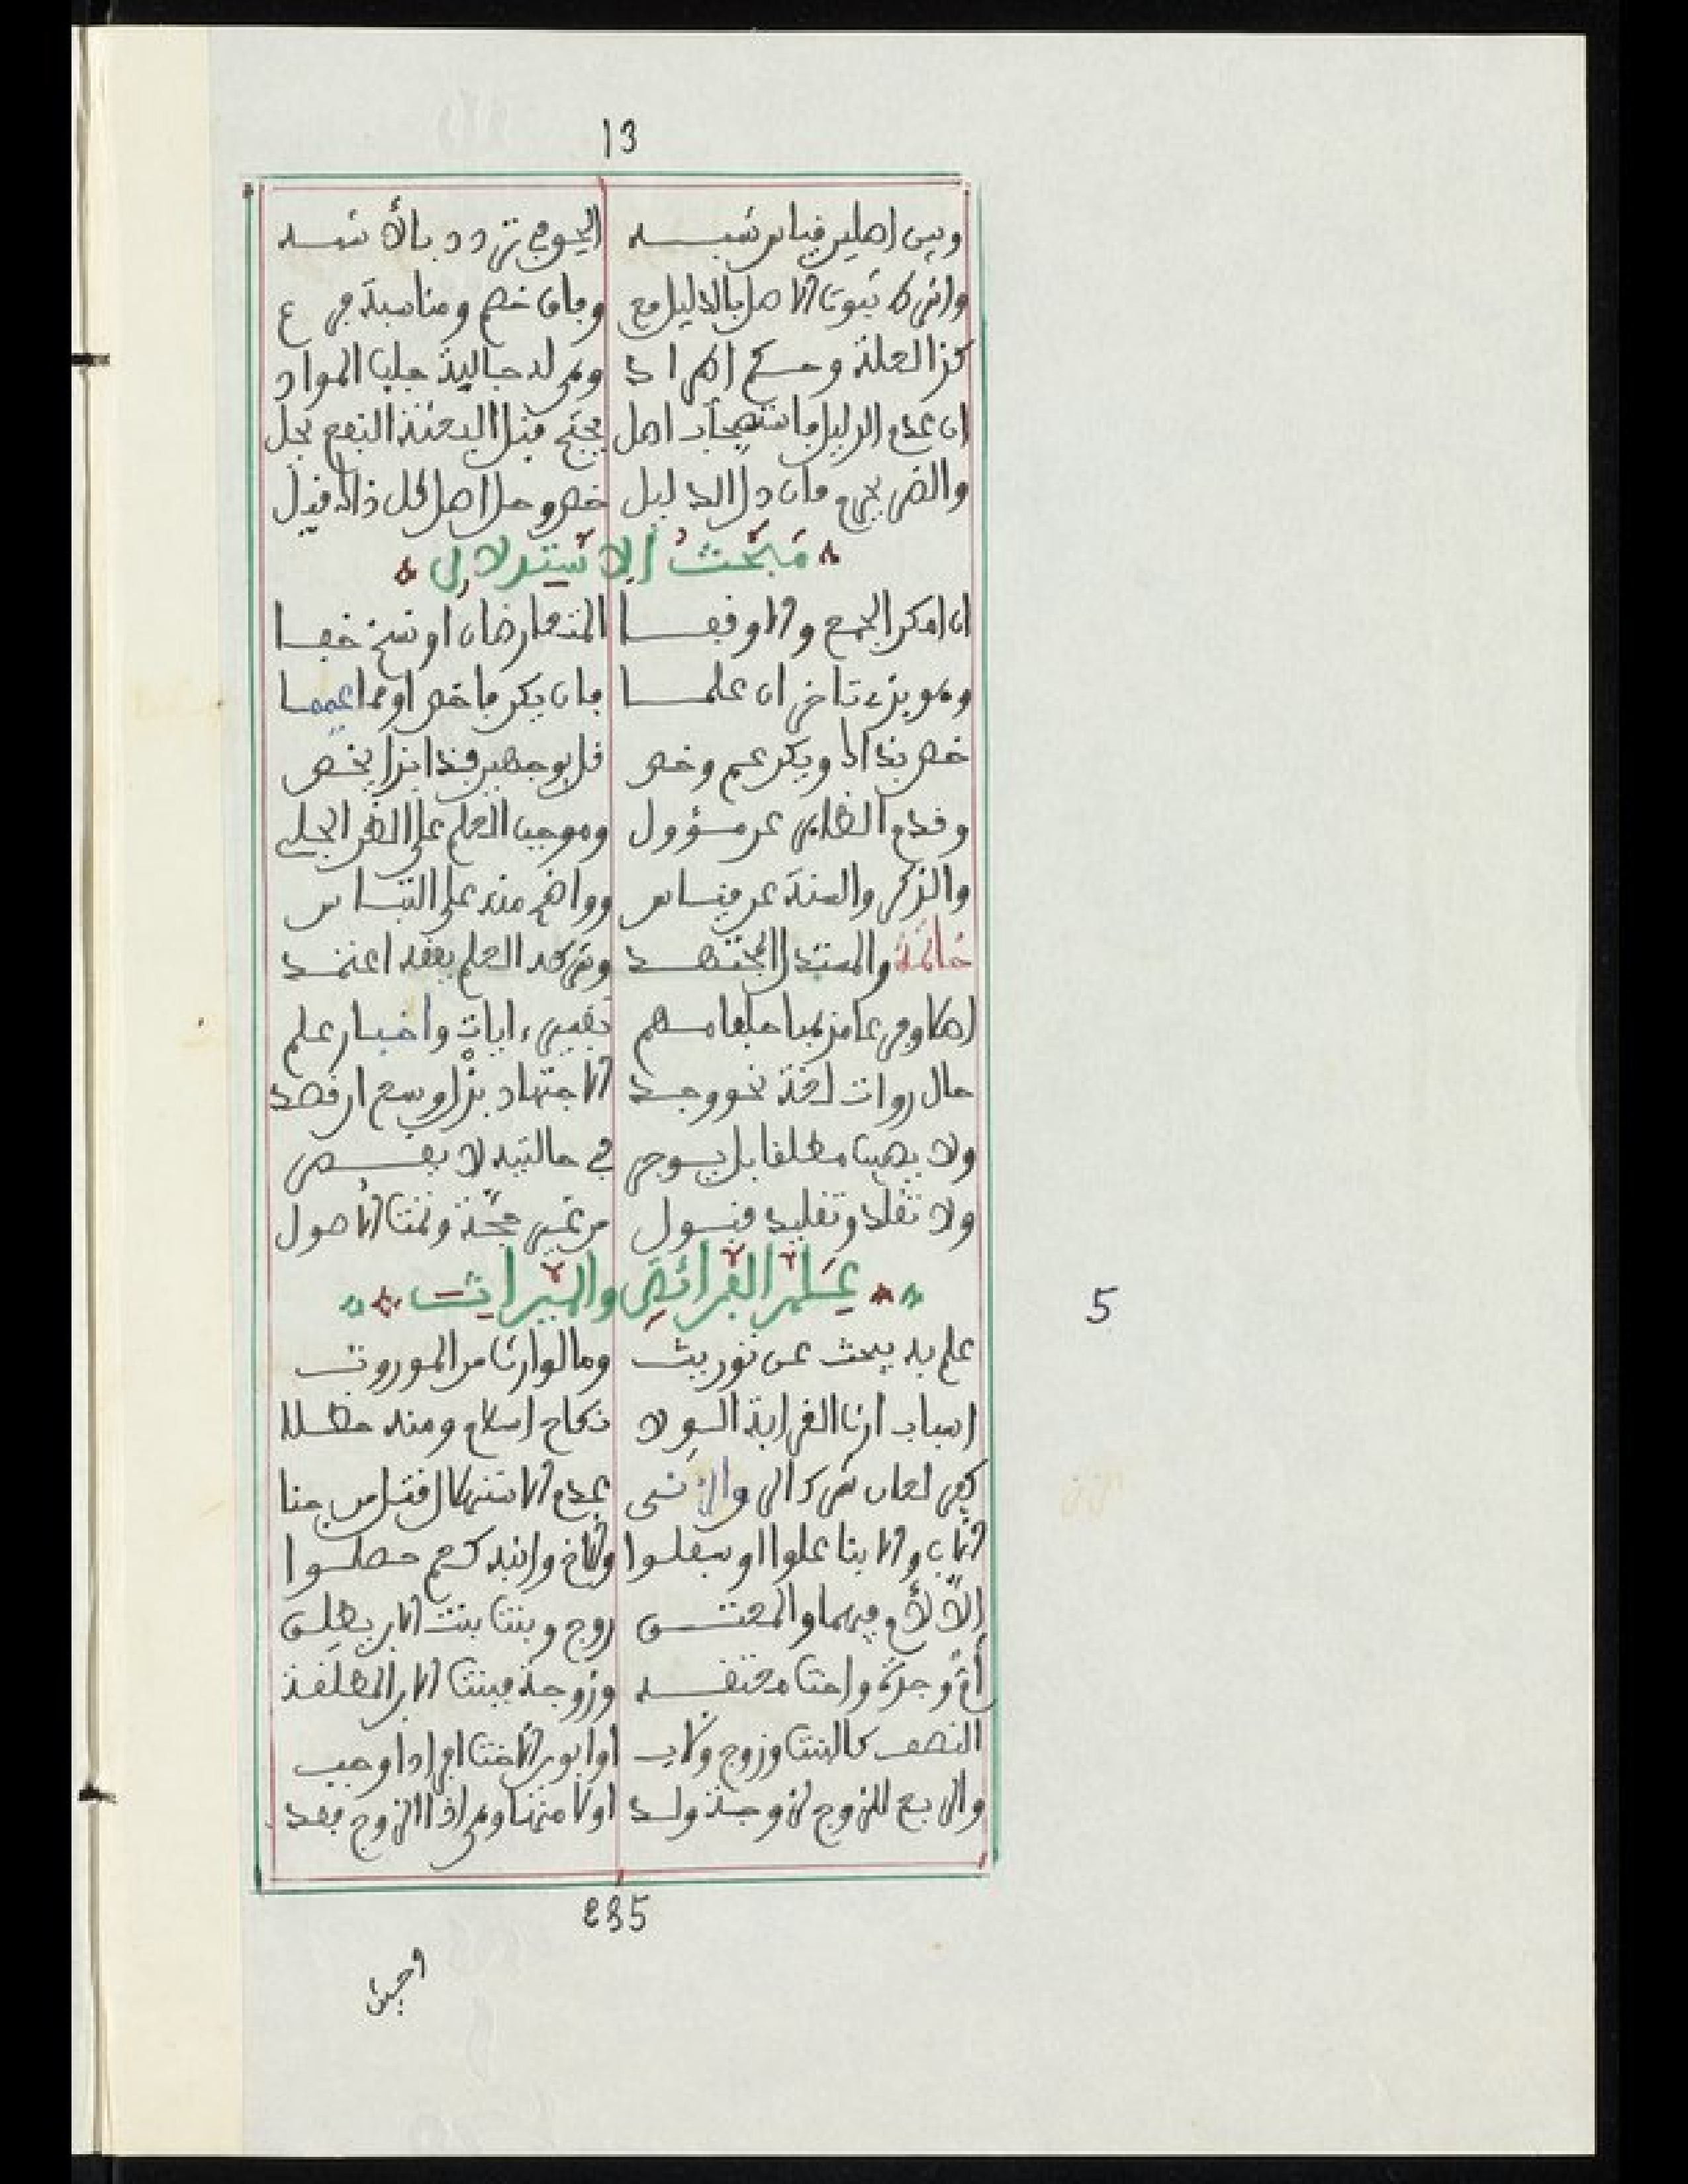 13
وبين اصلين قياس شبه الحوم تردد بالأ شبه
واشرط ثبوت الاصل بالدليل مع وفاق خصم ومناسبة فرع
كذا لعلة وحكم اطراد وهي له جالبة جلب المواد
ان عدم الدليل فاستصحاب اصل يحتج قبل البعثة النفع بحل
والضر يحرم فان دل الدليل خص وحل اصل كل ذاك قيل
مَبْحَثُ الاسْتِدْلَالِ
ان امكن الجمع والا وقفا المتعارضان او نسخ خفا
وهو بذي تاخر ان علما فان يكن ما خص او مما عمما
خص بذاك ويكن عم وخص كل بوجهين فذا بذا يخص
وقدم الظاهر عن مؤول وموجب العلم على الظن الجلي
والذكر والسنة عن قياس وواضح منه على التباس
خاتمة والمستدل المجتهد وشرطه العلم بفقه اعتمد
اصلا وفرعا مذهبا خلفا مهم تفسير ءايات واخبار علم
حال روات لغة نحو وجد الاجتهاد بذل وسع ان قصد
ولا يصيب مطلقا بل يوجر في حالتيه لا يقصر
ولا تقلد وتقليد قبول من غير حجّة وتمت الاصول
عِلْمُ الفَرَائِضِ والمِيرَاثِ
علم به يبحث عن توريث وما لوارث من الموروث
اسباب ارث القرابة الولا نكاح اسلام ومنه حظلا
كفر لعان شرك الى والانثى عدم الاستهلال قتل من جنا
الاب والابنا علوا او سفلوا والاخ وابنه كعم حصلوا
الاّ لأم فيهما والمعتق زوج وبنت بنت الابن يطلق
أم وجدة واخت معتقه وزوجة فبنت الابن المطلقة
النصف كالبنت وزوج ولاب او ابوين الاخت افرادا وجب
والربع للزوج لزوجة ولد او لا منهما وهي اذا الزوج فقد
5
235
وحيث